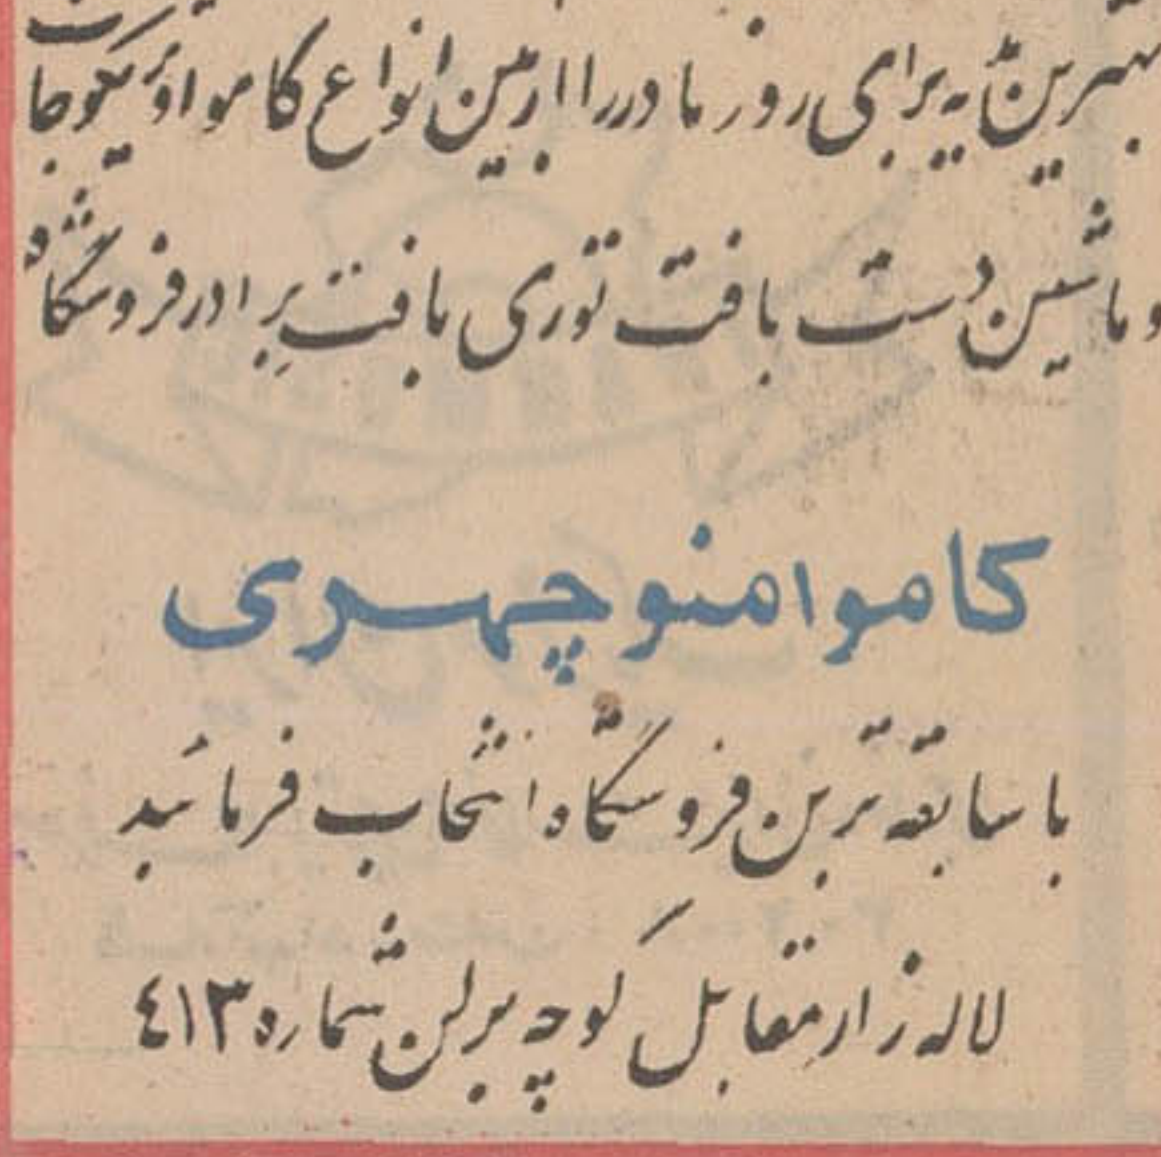 بهترین هدیه برای روز مادر را از بین انواع کاموا و تریکوجات
و ماشین دست بافت توری بافت برا در فروشگاه
کاموا منوچهری
با سابقه ترین فروشگاه انتخاب فرمائید
لاله زار مقابل کوچه برلن شماره ۴۱۳